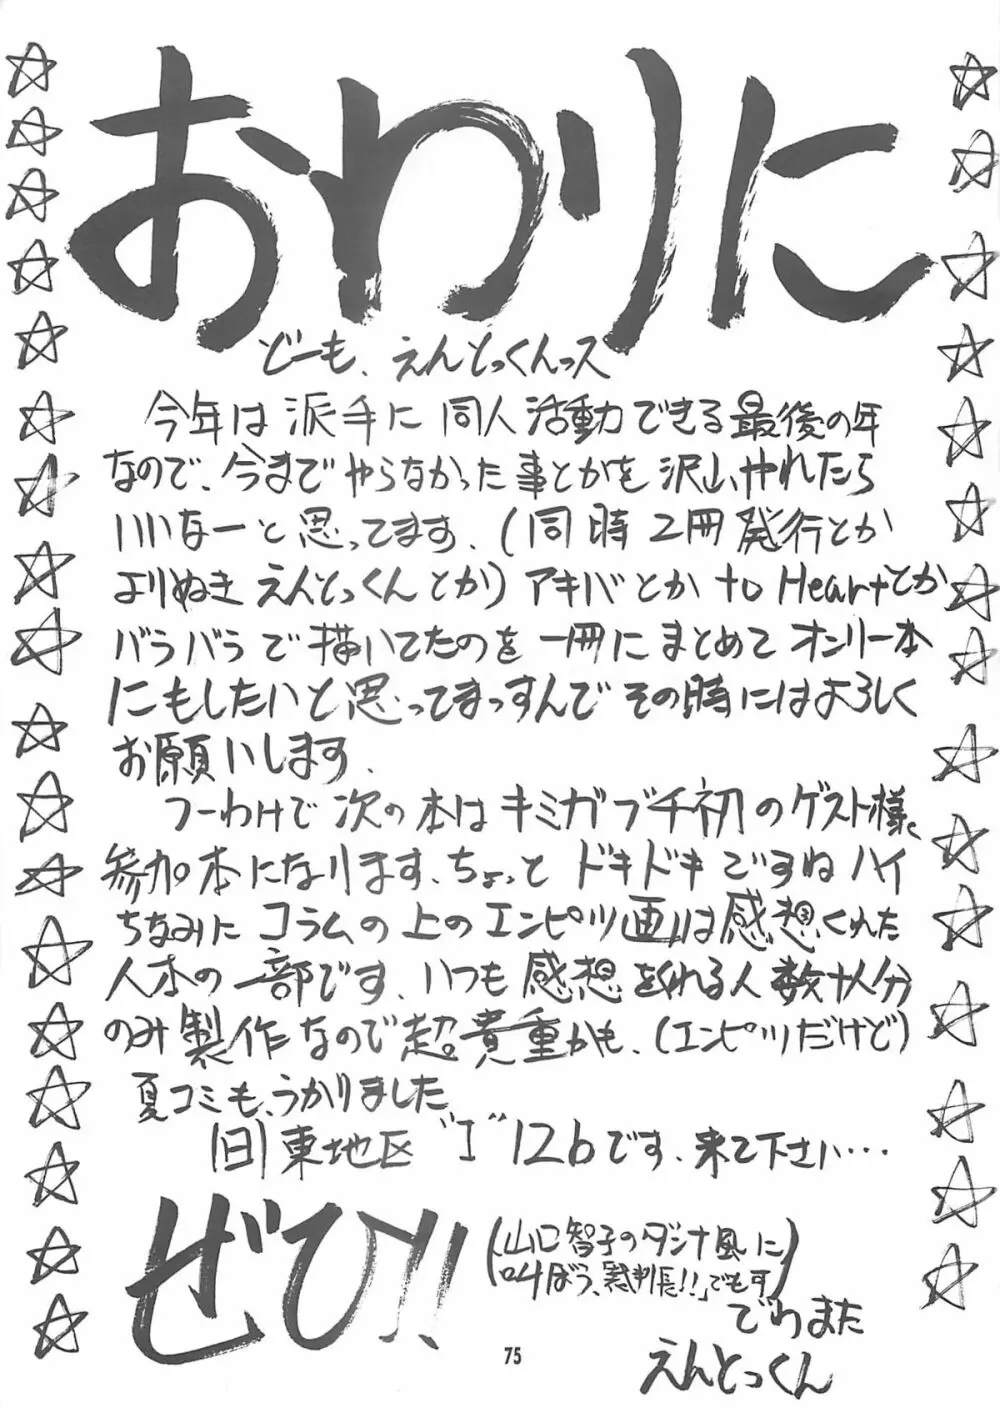 おわりに
どーも、えんとっくんっス
今年は派手に同人活動できる最後の年
なので、今までやらなかった事とかを沢山、やれたら
いいなーと思ってます、(同時2冊発行とか
よりぬきえんとっくんとか)アキバとか to Heartとか
バラバラで描いてたのを一冊にまとめてオンリー本
にもしたいと思ってまっすんでその時にはよろしく
お願いします、
つーわけで次の本はキミガブチ初のゲスト様
参加本になります、ちょっとドキドキですねハイ
ちなみにコラムの上のエンピツ画は感想くれた
人本の一部です、いつも感想をくれる人数十人分
のみ製作なので超貴重かも、(エンピツだけど)
夏コミも、うかりました
(日)東地区"I"12bです、来て下さい…
ぜひ!!
(山口智子のダシナ風に
叫ぼう、裁判長!!」でもす)
でわまた
えんとっくん
75